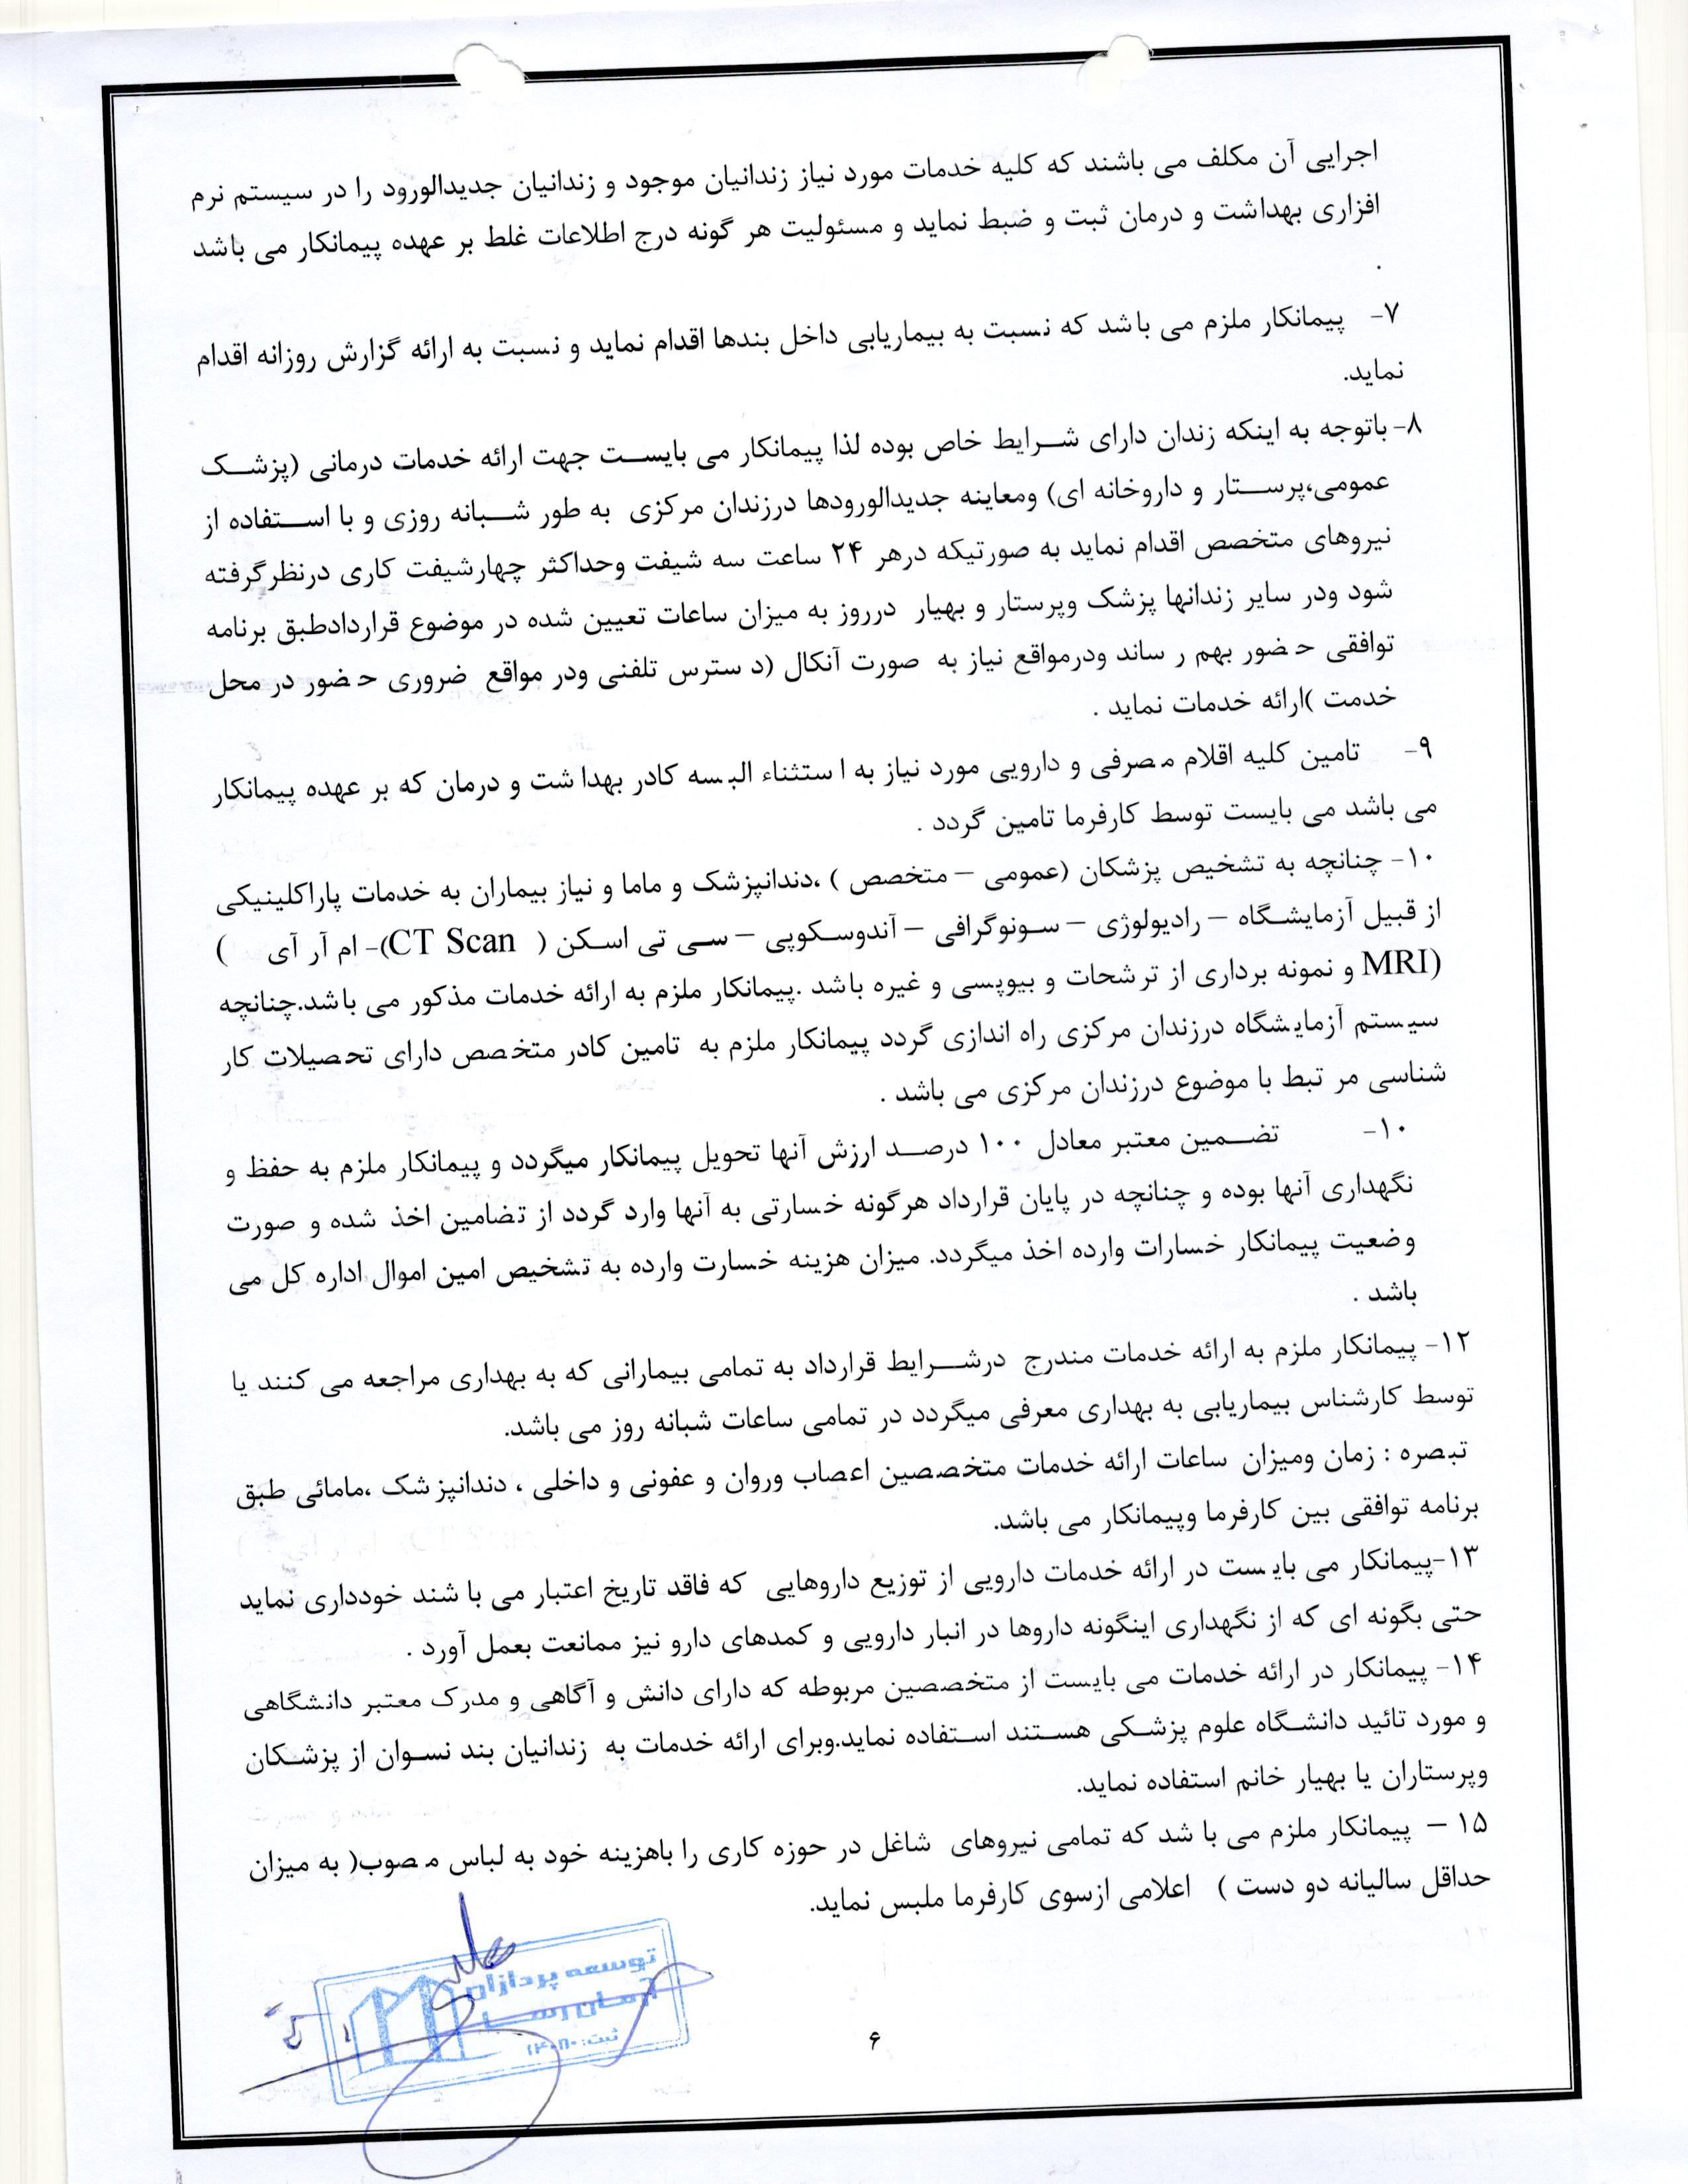 اجرایی آن مکلف می باشند که کلیه خدمات مورد نیاز زندانیان موجود و زندانیان جدیدالورود را در سیستم نرم
افزاری بهداشت و درمان ثبت و ضبط نماید و مسئولیت هر گونه درج اطلاعات غلط بر عهده پیمانکار می باشد
.
۷- پیمانکار ملزم می باشد که نسبت به بیماریابی داخل بندها اقدام نماید و نسبت به ارائه گزارش روزانه اقدام
نماید.
۸- باتوجه به اینکه زندان دارای شرایط خاص بوده لذا پیمانکار می بایست جهت ارائه خدمات درمانی (پزشک
عمومی،پرستار و داروخانه ای) ومعاینه جدیدالورودها درزندان مرکزی به طور شبانه روزی و با استفاده از
نیروهای متخصص اقدام نماید به صورتیکه درهر ۲۴ ساعت سه شیفت وحداکثر چهارشیفت کاری درنظرگرفته
شود ودر سایر زندانها پزشک وپرستار و بهیار درروز به میزان ساعات تعیین شده در موضوع قراردادطبق برنامه
توافقی حضور بهم رساند ودرمواقع نیاز به صورت آنکال (دسترس تلفنی ودر مواقع ضروری حضور در محل
خدمت )ارائه خدمات نماید .
۹- تامین کلیه اقلام مصرفی و دارویی مورد نیاز به استثناء البسه کادر بهداشت و درمان که بر عهده پیمانکار
می باشد می بایست توسط کارفرما تامین گردد .
۱۰- چنانچه به تشخیص پزشکان (عمومی – متخصص ) ،دندانپزشک و ماما و نیاز بیماران به خدمات پاراکلینیکی
از قبیل آزمایشگاه – رادیولوژی – سونوگرافی – آندوسکوپی – سی تی اسکن ( CT Scan)- ام آر آی (
MRI) و نمونه برداری از ترشحات و بیوپسی و غیره باشد .پیمانکار ملزم به ارائه خدمات مذکور می باشد.چنانچه
سیستم آزمایشگاه درزندان مرکزی راه اندازی گردد پیمانکار ملزم به تامین کادر متخصص دارای تحصیلات کار
شناسی مر تبط با موضوع درزندان مرکزی می باشد .
۱۰- تضمین معتبر معادل ۱۰۰ درصد ارزش آنها تحویل پیمانکار میگردد و پیمانکار ملزم به حفظ و
نگهداری آنها بوده و چنانچه در پایان قرارداد هرگونه خسارتی به آنها وارد گردد از تضامین اخذ شده و صورت
وضعیت پیمانکار خسارات وارده اخذ میگردد. میزان هزینه خسارت وارده به تشخیص امین اموال اداره کل می
باشد .
۱۲- پیمانکار ملزم به ارائه خدمات مندرج درشرایط قرارداد به تمامی بیمارانی که به بهداری مراجعه می کنند یا
توسط کارشناس بیماریابی به بهداری معرفی میگردد در تمامی ساعات شبانه روز می باشد.
تبصره : زمان ومیزان ساعات ارائه خدمات متخصصین اعصاب وروان و عفونی و داخلی ، دندانپزشک ،مامائی طبق
برنامه توافقی بین کارفرما وپیمانکار می باشد.
۱۳-پیمانکار می بایست در ارائه خدمات دارویی از توزیع داروهایی که فاقد تاریخ اعتبار می باشند خودداری نماید
حتی بگونه ای که از نگهداری اینگونه داروها در انبار دارویی و کمدهای دارو نیز ممانعت بعمل آورد .
۱۴- پیمانکار در ارائه خدمات می بایست از متخصصین مربوطه که دارای دانش و آگاهی و مدرک معتبر دانشگاهی
و مورد تائید دانشگاه علوم پزشکی هستند استفاده نماید.وبرای ارائه خدمات به زندانیان بند نسوان از پزشکان
وپرستاران یا بهیار خانم استفاده نماید.
۱۵ – پیمانکار ملزم می باشد که تمامی نیروهای شاغل در حوزه کاری را باهزینه خود به لباس مصوب( به میزان
حداقل سالیانه دو دست ) اعلامی ازسوی کارفرما ملبس نماید.
توسعه پردازان
آرمان رسا
ثبت:
۶